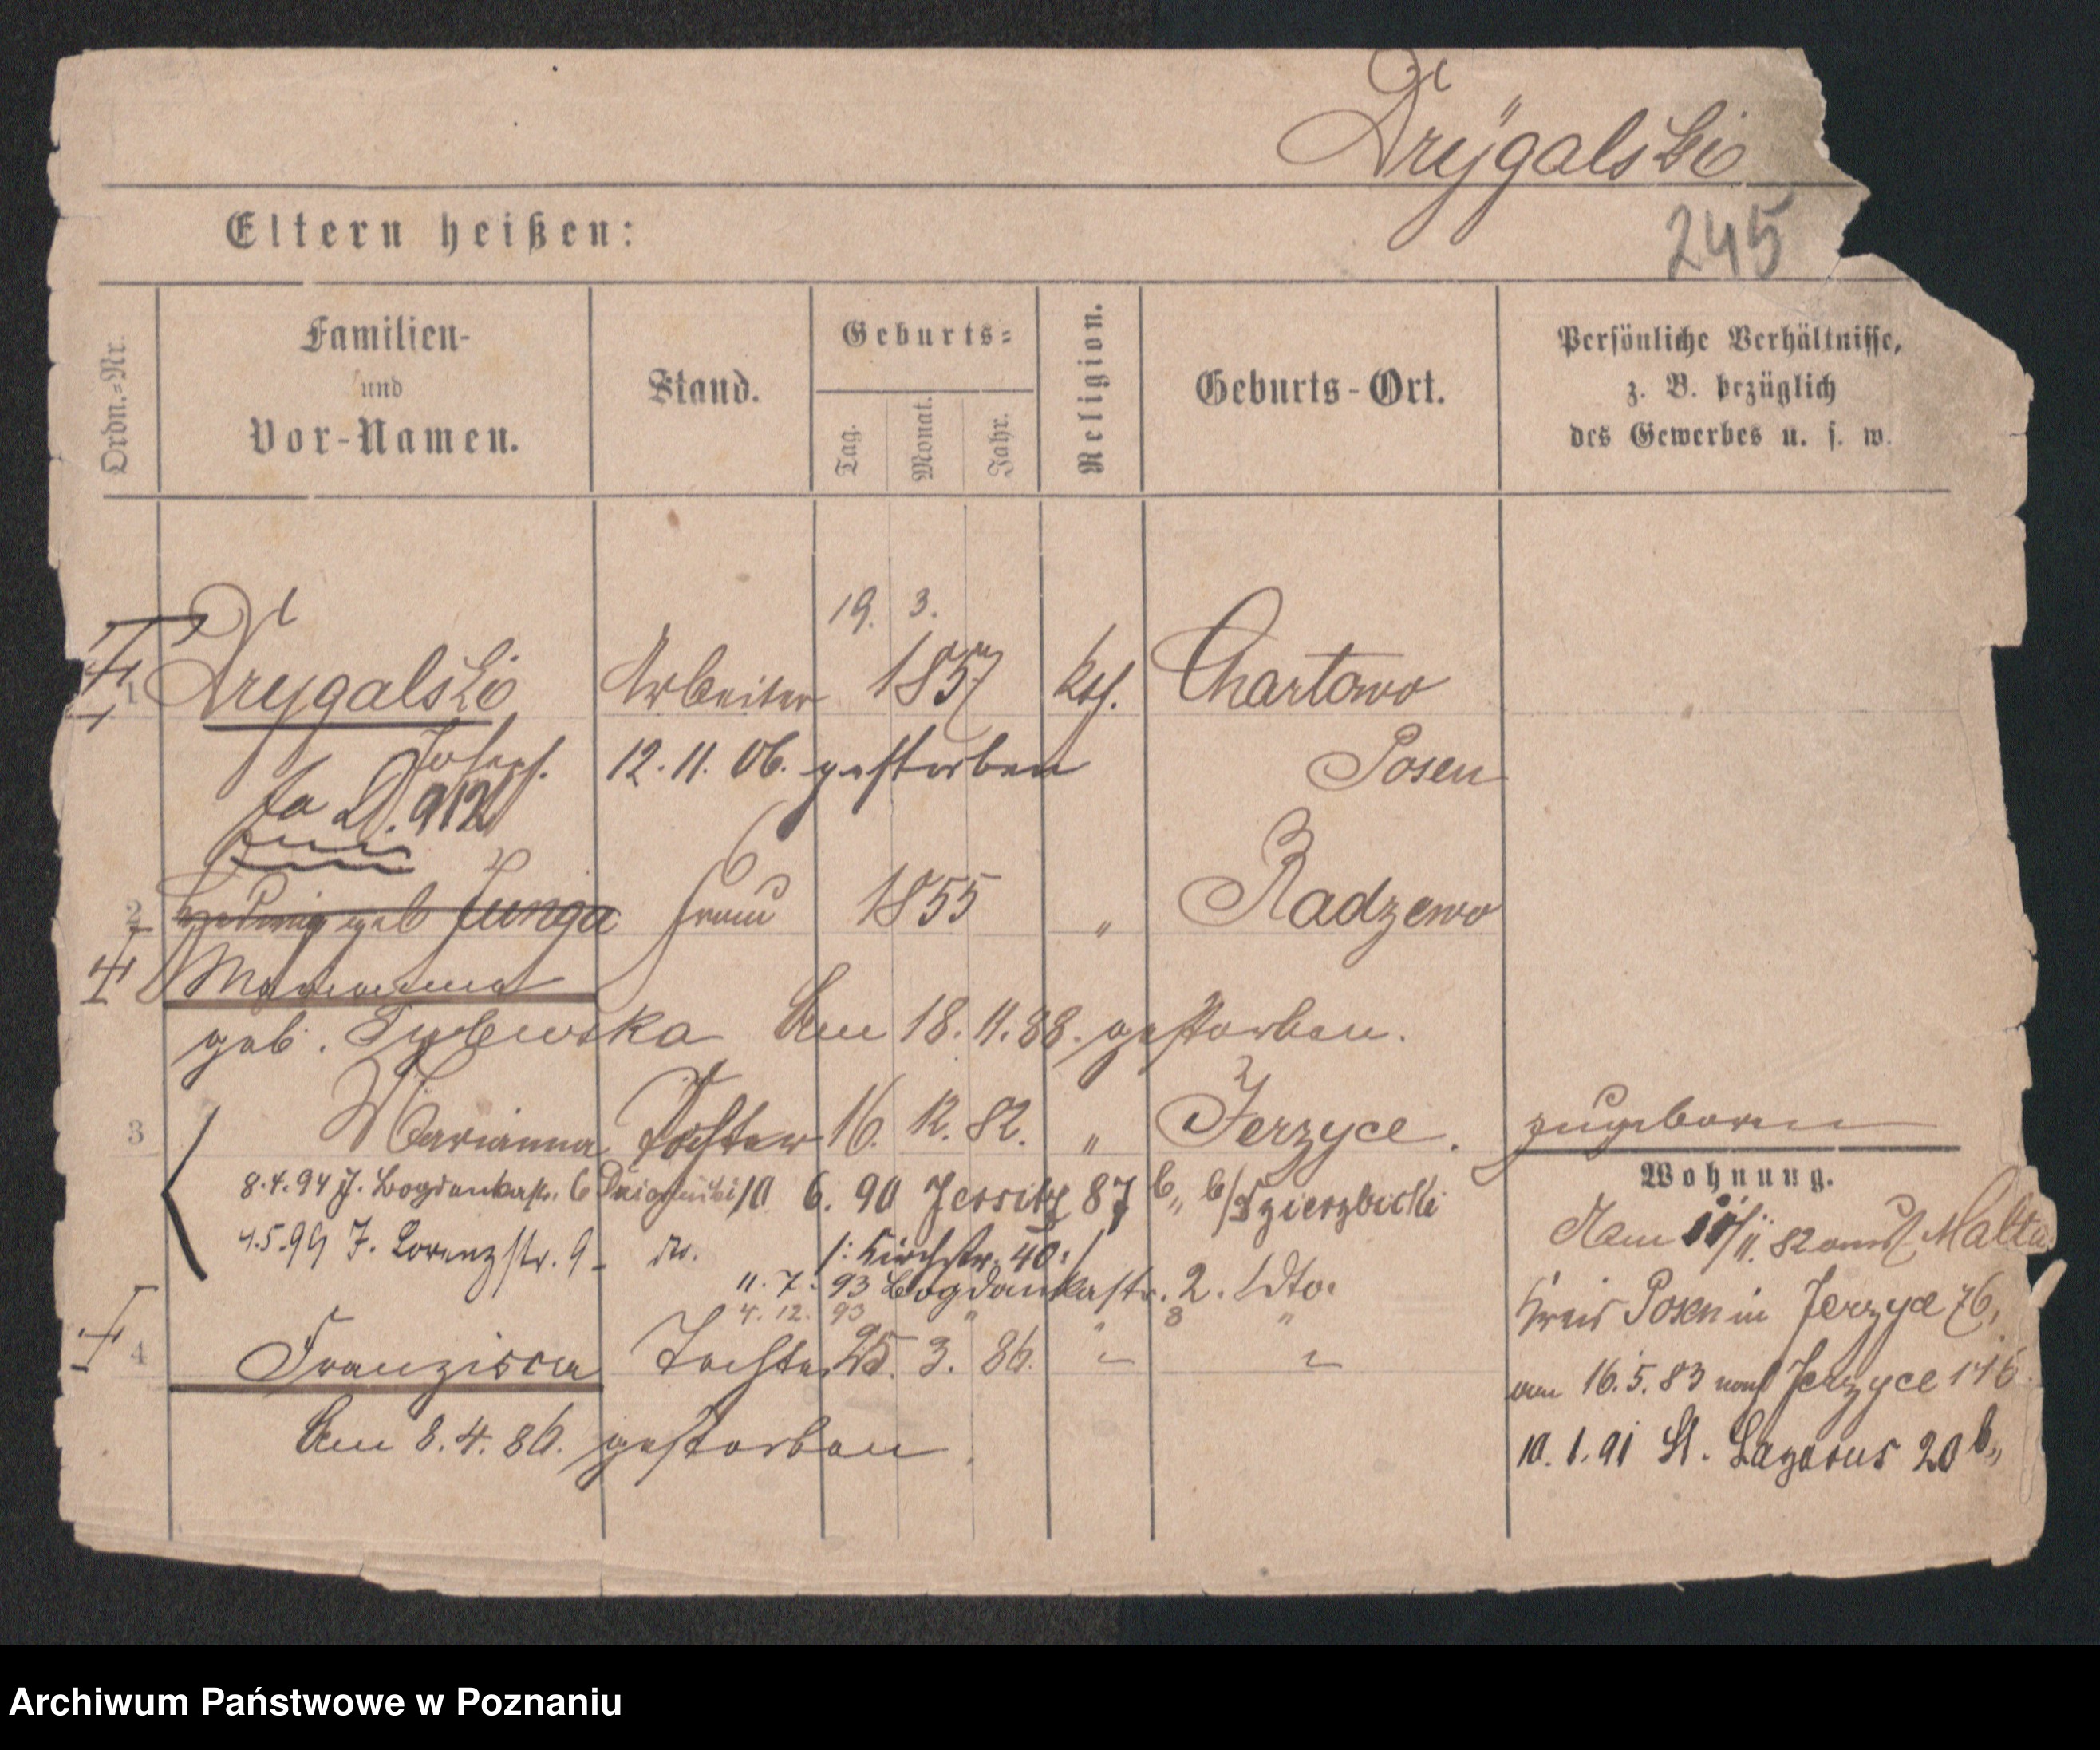 Drÿgalski
245
Eltern heißen:
Ordn.-Nr.
Familien-
und
Vor-Namen.
Stand.
Geburts-
Tag.
Monat.
Jahr.
Religion.
Geburts-Ort.
Persönliche Verhältnisse,
z. B. bezüglich
des Gewerbes u. s. w.
19. 3.
1 Drygalski Arbeiter 1857 kth. Chartowo
Josef. 12.11.06. gestorben Posen
fo D. 912
2 Hedwig geb Junga Frau 1855 " Radzewo
Marianna
geb. Am 18.11.88. gestorben.
3 Marianna Tochter 16. 12. 82. " Jerzyce. zugeboren
Wohnung.
8.4.94 J. Bogdankastr. 6 10 6. 90 Jersitz 87 b,, b/
4.5.99 J. Lorenzstr. 9 - do. /: Kirchstr. 40:/
11. 7. 93 Bogdankastr. 2. Dto.
4. 12. 93 " " 8 "
Kam 11/11. 82 aus Malta
Kreis Posen in Jerzyce 76,
4 Franzisca Tochter 25. 3. 86. " "
am 16.5.83 nach Jerzyce 146.
Am 8.4.86. gestorben.
10.1.91 St. Lazarus 20 b,,
Archiwum Państwowe w Poznaniu